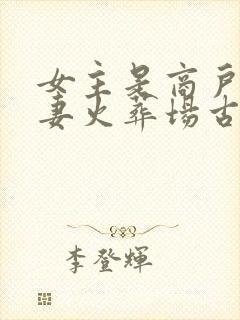 女主是商户
妻火葬场古
李登輝